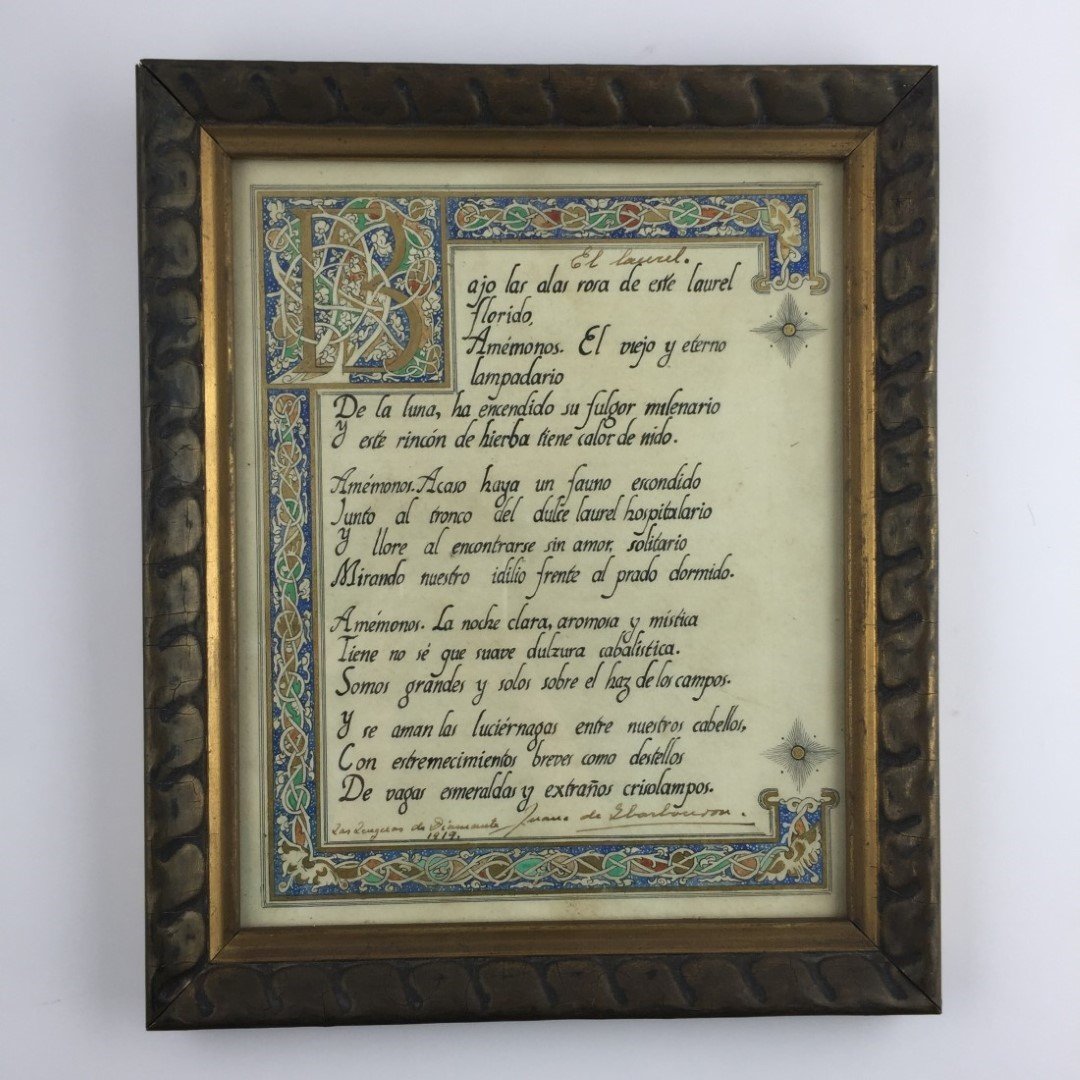 El laurel.
Bajo las alas rosa de este laurel
florido,
Amémonos. El viejo y eterno
lampadario
De la luna, ha encendido su fulgor milenario
Y este rincón de hierba tiene calor de nido.
Amémonos. Acaso haya un fauno escondido
Junto al tronco del dulce laurel hospitalario
Y llore al encontrarse sin amor, solitario
Mirando nuestro idilio frente al prado dormido.
Amémonos. La noche clara, aromosa y mística
Tiene no sé que suave dulzura cabalística.
Somos grandes y solos sobre el haz de los campos.
Y se aman las luciérnagas entre nuestros cabellos,
Con estremecimientos breves como destellos
De vagas esmeraldas y extraños crisolampos.
Las Lenguas de Diamante Juana de Ibarbourou.
1919.